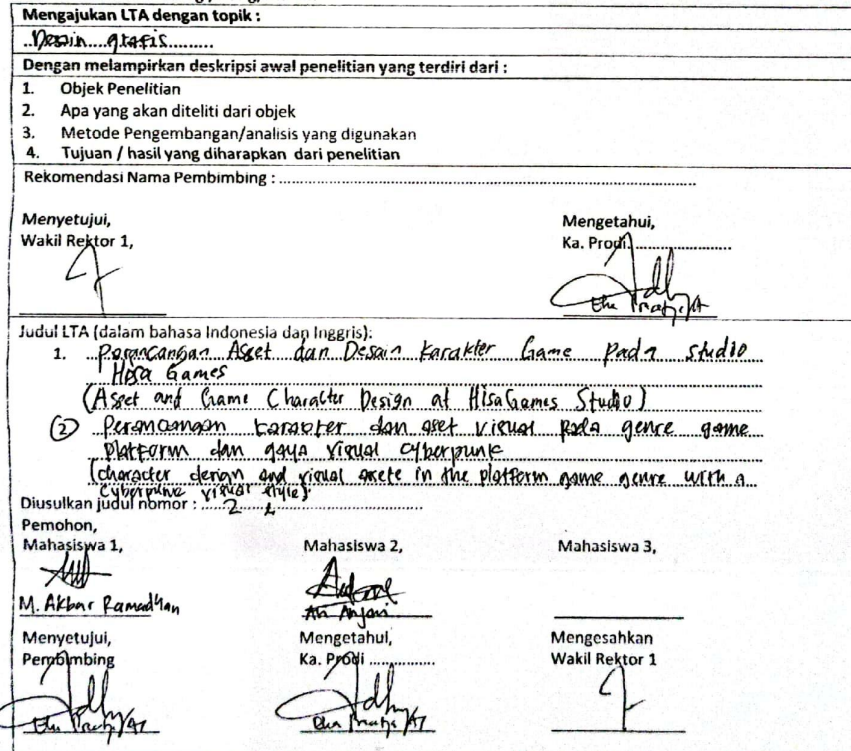 Mengajukan LTA dengan topik :
Desain grafis
Dengan melampirkan deskripsi awal penelitian yang terdiri dari :
1. Objek Penelitian
2. Apa yang akan diteliti dari objek
3. Metode Pengembangan/analisis yang digunakan
4. Tujuan / hasil yang diharapkan dari penelitian
Rekomendasi Nama Pembimbing :
Menyetujui,
Wakil Rektor 1,
Mengetahui,
Ka. Prodi
Judul LTA (dalam bahasa Indonesia dan Inggris):
1. Perancangan Asset dan Desain Karakter Game Pada studio
Hisa Games
(Asset and Game Character Design at HisaGames Studio)
2 Perancangan karakter dan aset visual pada genre game
platform dan gaya visual cyberpunk
(character design and visual assets in the platform game genre with a
cyberpunk visual style).
Diusulkan judul nomor : 2
Pemohon,
Mahasiswa 1,
Mahasiswa 2,
Mahasiswa 3,
M. Akbar Ramadhan
Ari Anjani
Menyetujui,
Pembimbing
Mengetahui,
Ka. Prodi
Mengesahkan
Wakil Rektor 1